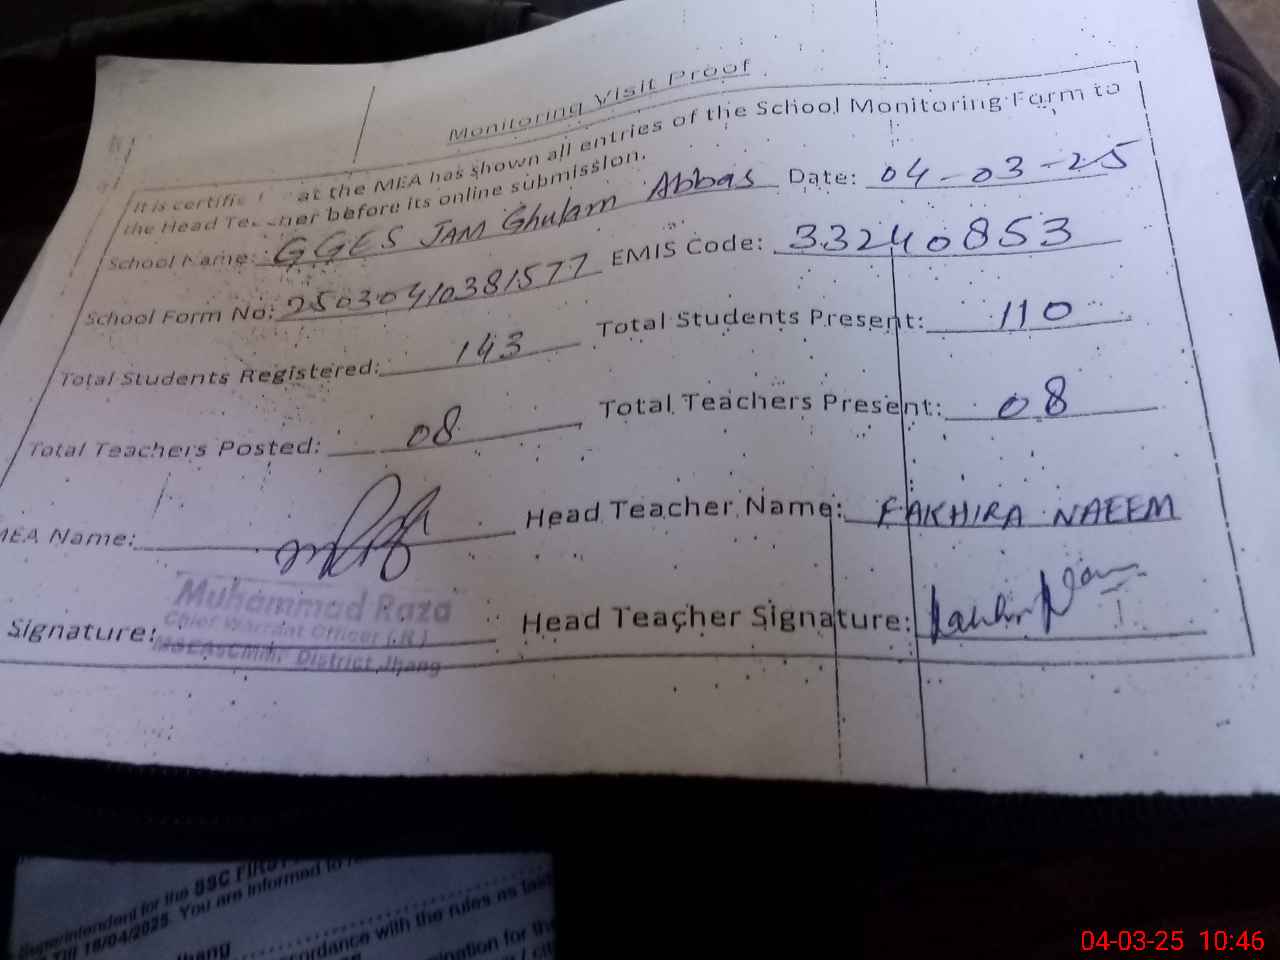 Monitoring Visit Proof
It is certifie at the MEA has shown all entries of the School Monitoring Form to
the Head Te cher before its online submission.
School Name: GGES JAM Ghulam Abbas Date: 04-03-25
School Form No: 25030410381577 EMIS Code: 33240853
Total Students Registered: 143 Total Students Present: 110
Total Teachers Posted: 08 Total Teachers Present: 08
MEA Name: Head Teacher Name: FAKHIRA NAEEM
Muhammad Raza
Chief Warrant Officer (R)
Signature: Head Teacher Signature:
District Jhang
Superintendent for the SSC FIRST
Till 18/04/2025. You are informed to
Jhang
cordance with the rules as
ination for the
04-03-25 10:46